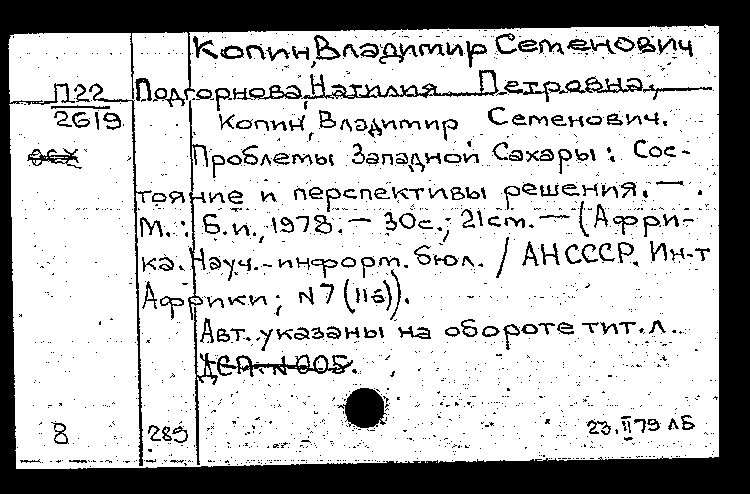 Копин, Владимир Семенович
П22 Подгорнова, Наталия Петровна,
2619 Копин, Владимир Семенович.
Проблемы Западной Сахары: Сос-
тояние и перспективы решения. — .
М.: Б.и., 1978. — 30с.; 21см. — (Афри-
ка. Науч.-информ. бюл. / АН СССР. Ин-т
Африки; N7 (116)).
Авт. указаны на обороте тит.л.
ДСП. N 005.
8 289 23.II 79 ЛБ